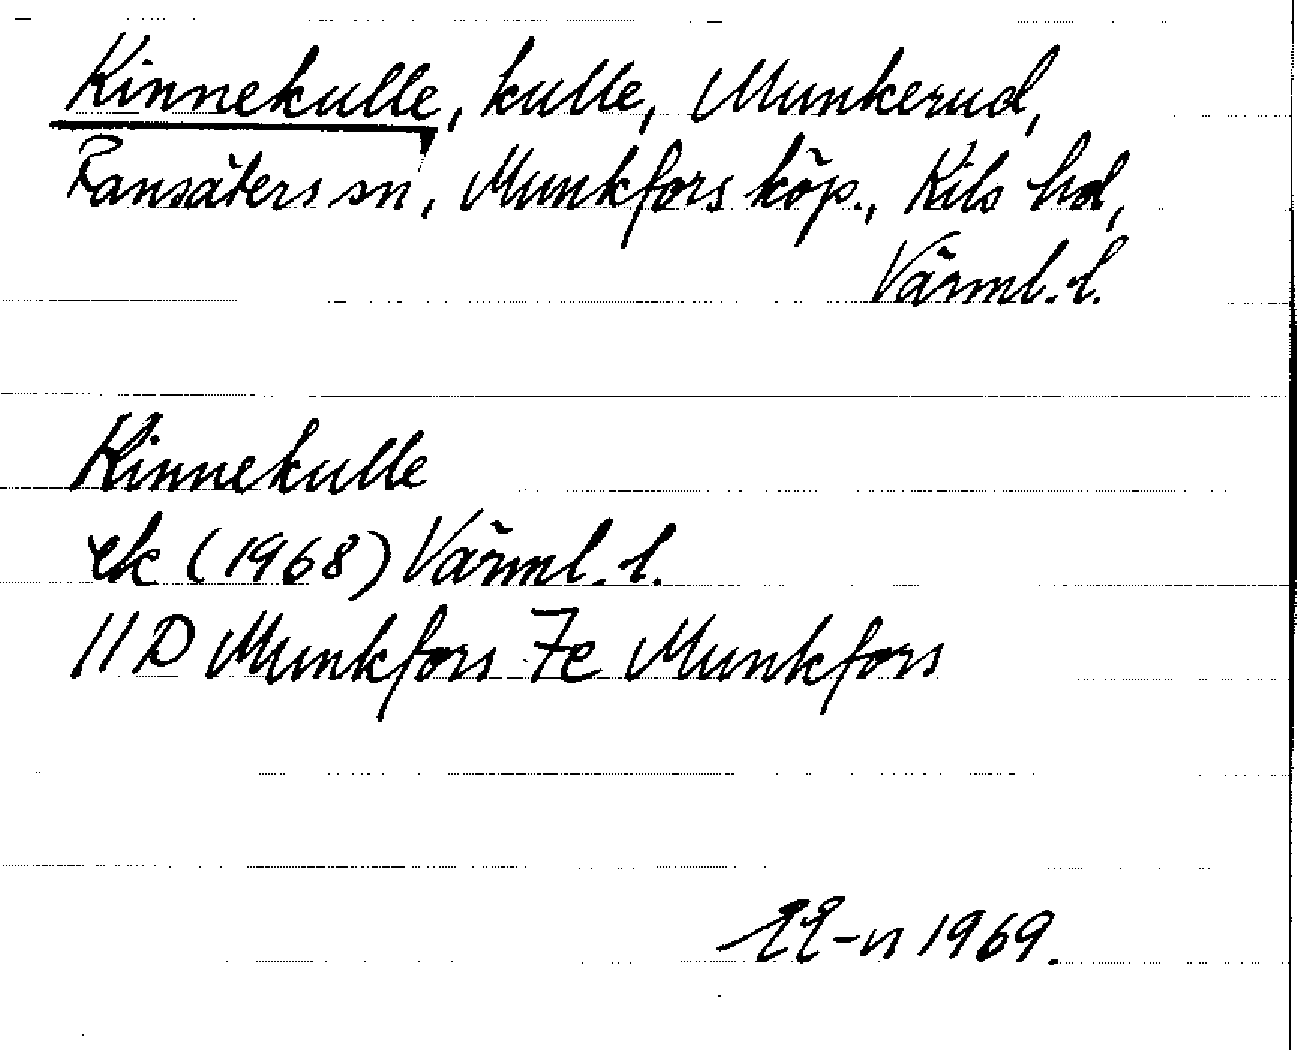 Kinnekulle, kulle, Munkerud,
Ransäters sn, Munkfors köp., Kils hd,
Värml. l.
Kinnekulle
ek (1968) Värml. l.
11 D Munkfors 7e Munkfors
1969.